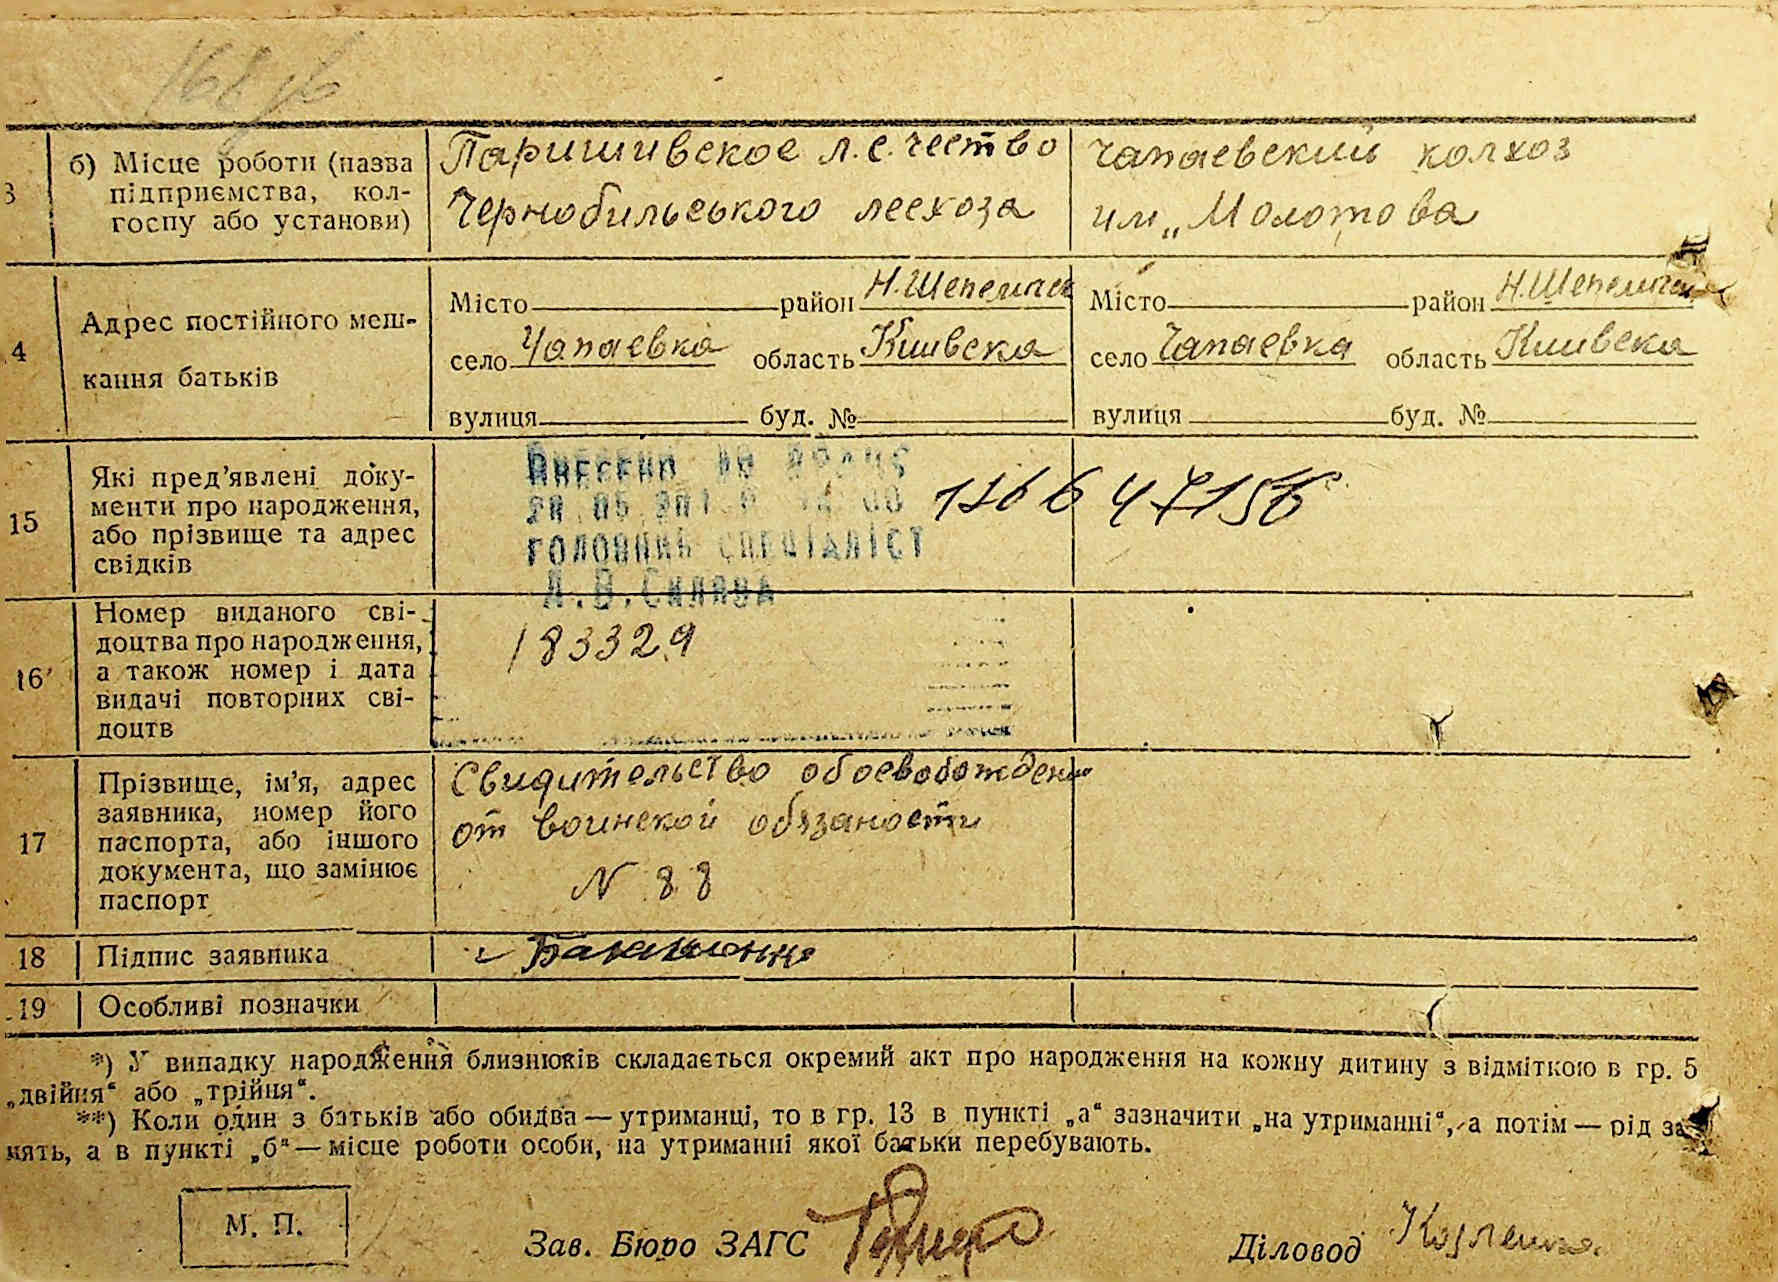 б) Місце роботи (назва
підприємства, кол-
госпу або установи)
Паришивское л.с.чество
Чернобильського лесхоза
Чапаевский колхоз
им „Молотова
4
Адрес постійного меш-
кання батьків
Місто район Н.Шепелич
село Чапаевка область Київска
вулиця буд. №
Місто район Н.Шепелич
село Чапаевка область Київска
вулиця буд. №
15
Які пред'явлені доку-
менти про народження,
або прізвище та адрес
свідків
Внесено до
головний спеціаліст
16
Номер виданого сві-
доцтва про народження,
а також номер і дата
видачі повторних сві-
доцтв
183329
17
Прізвище, ім'я, адрес
заявника, номер його
паспорта, або іншого
документа, що замінює
паспорт
Свидительство обосвобождени
от воинской обязаности
N 88
18
Підпис заявника
19
Особливі позначки
*) У випадку народження близнюків складається окремий акт про народження на кожну дитину з відміткою в гр. 5
„двійня“ або „трійня“.
**) Коли один з батьків або обидва — утриманці, то в гр. 13 в пункті „а“ зазначити „на утриманні“, а потім — рід за
нять, а в пункті „б“ — місце роботи особи, на утриманні якої батьки перебувають.
М. П.
Зав. Бюро ЗАГС
Діловод